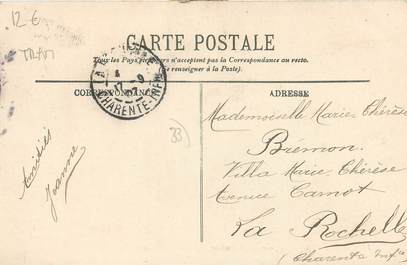 12 €
CARTE POSTALE
Tous les Pays étrangers n'acceptent pas la Correspondance au recto.
(Se renseigner à la Poste).
CORRESPONDANCE
ADRESSE
17 - 9
CHARENTE-INFRE
33
Amitiés
Jeanne
Mademoiselle Marie Thérèse
Brémon
Villa Marie Thérèse
Avenue Carnot
La Rochelle
(Charente Infre